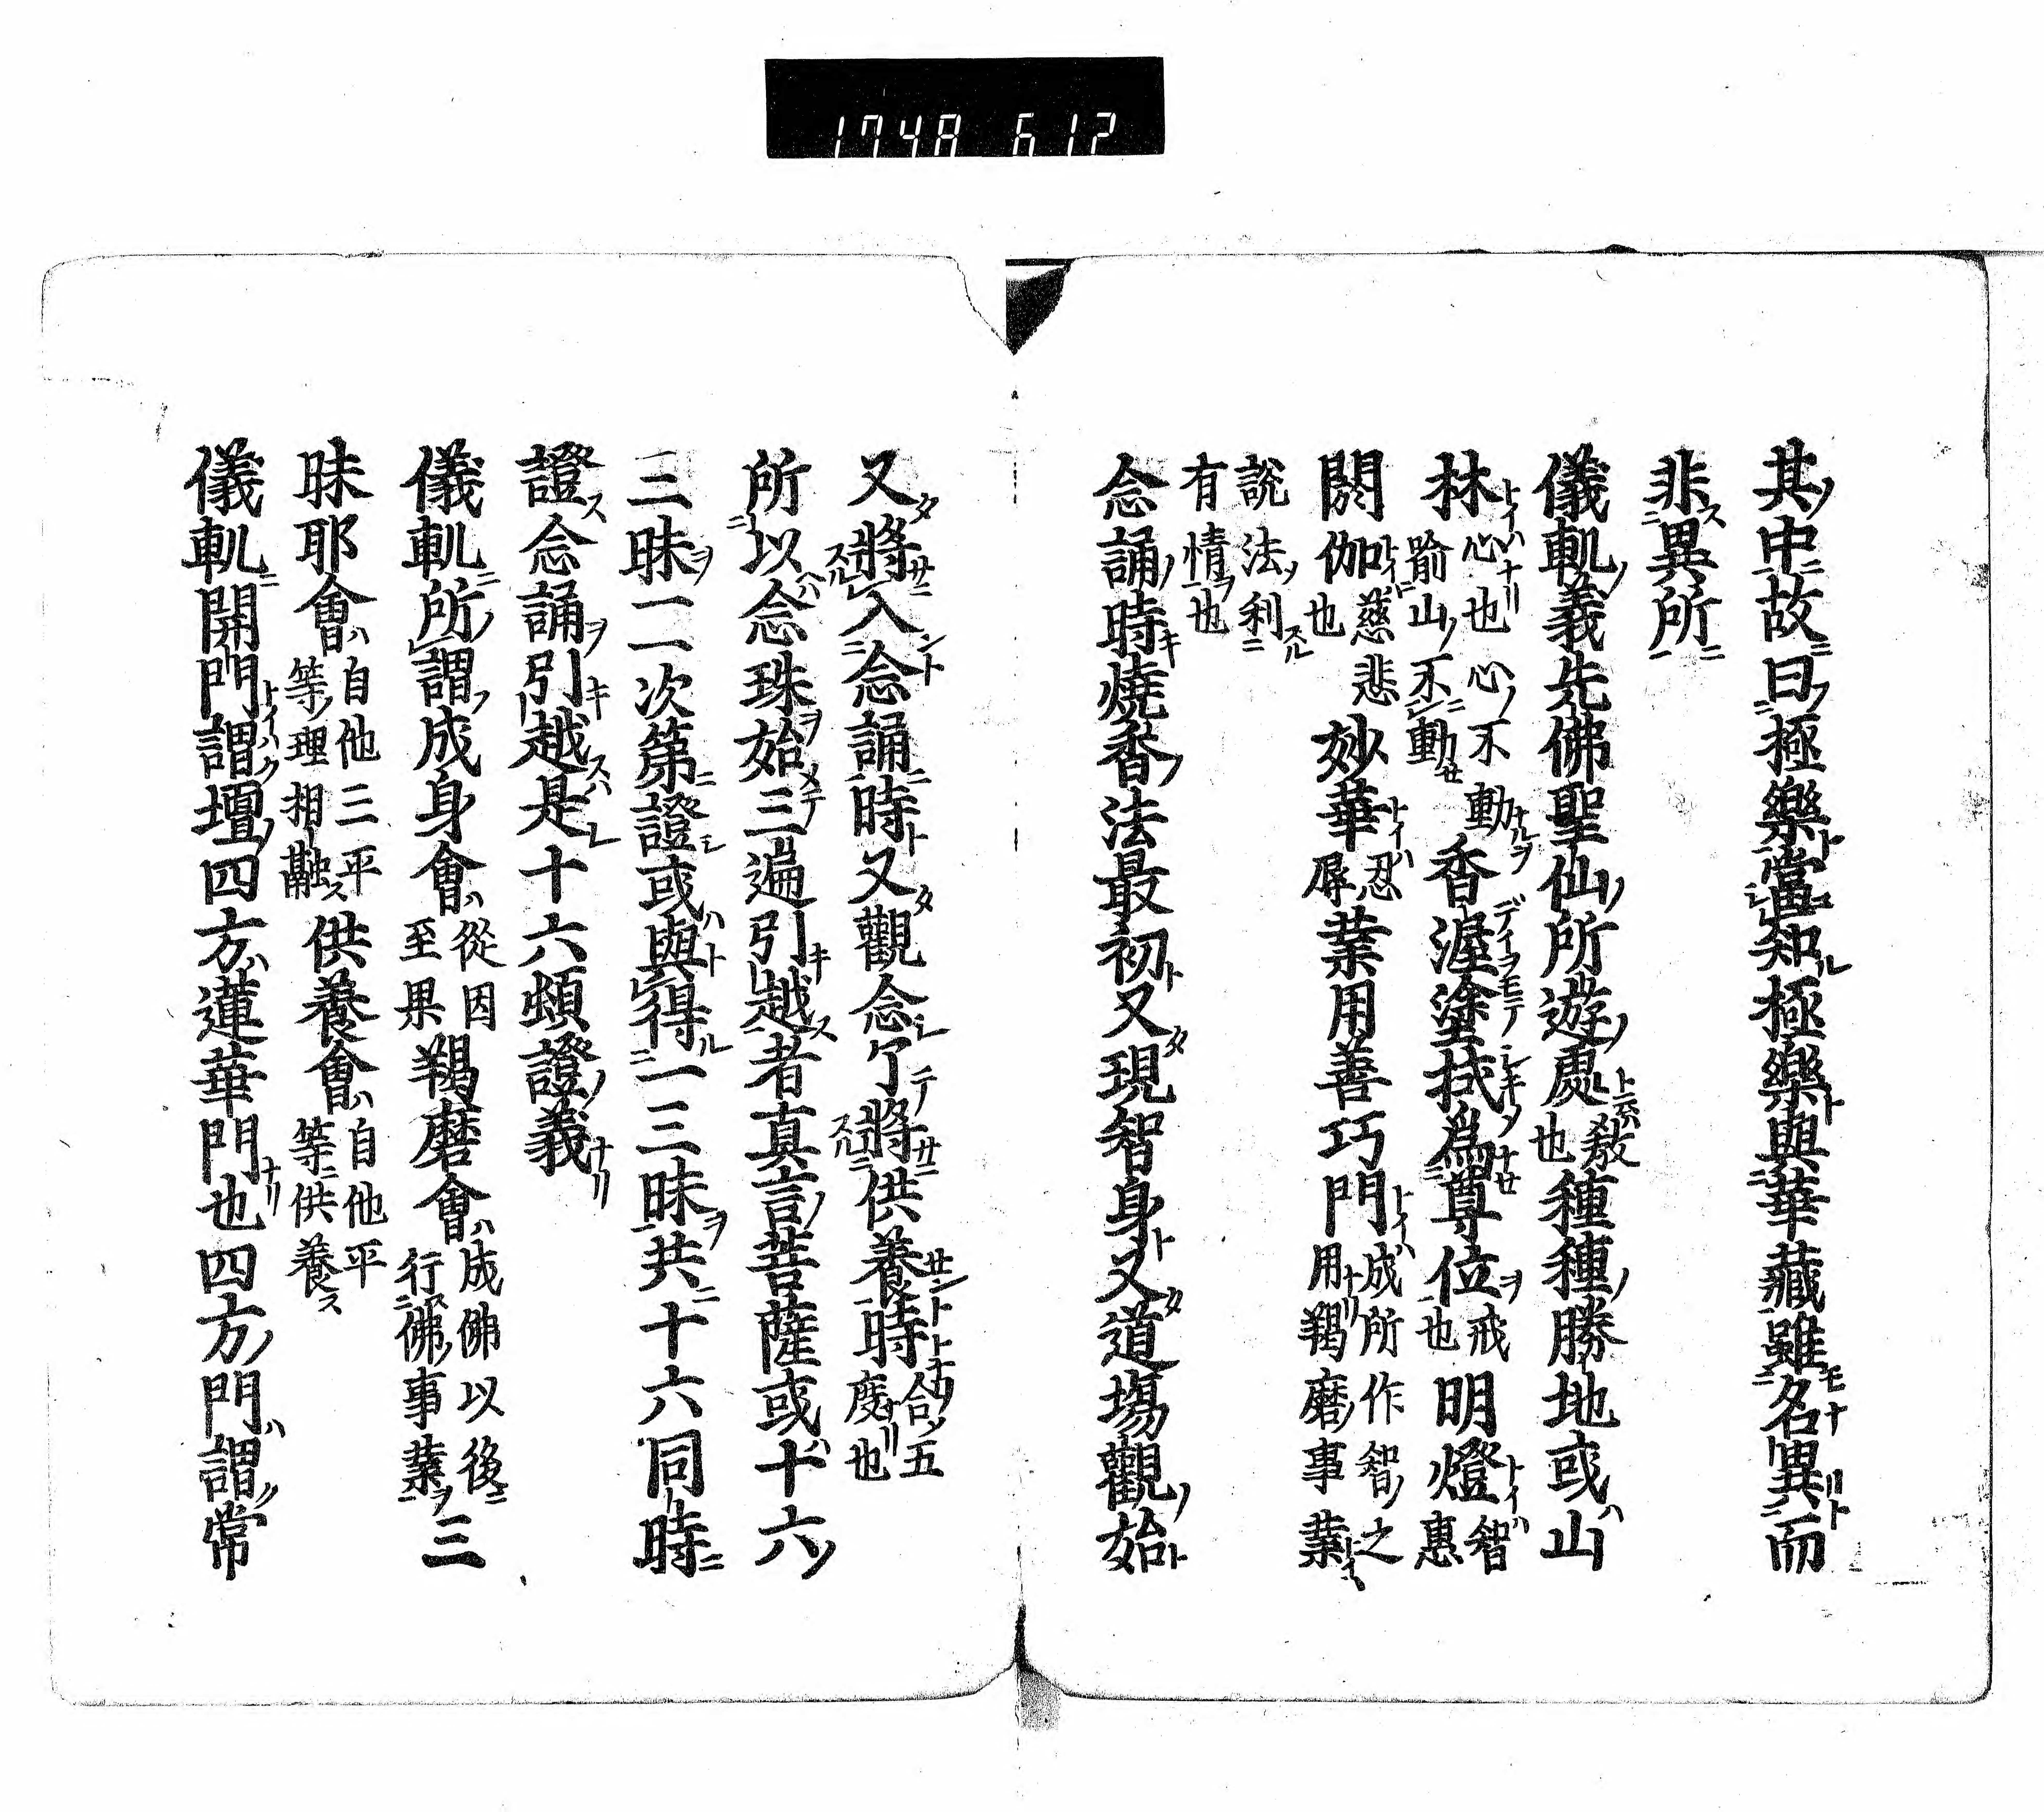 1748 612
其中故曰極樂當知極樂與華藏雖名異而
非異所
儀軌義先佛聖仙所遊處教也種種勝地或山
林心也心不動喻山不動香渥塗拭爲尊位戒也明燈智惠
閼伽慈悲也妙華忍辱業用善巧門成所作智之用羯磨事業
說法利有情也
念誦時燒香法最初又現智身又道場觀始
又將入念誦時又觀念了將供養時合五度也
所以念珠始三遍引越者真言菩薩或十六
三昧一一次第證或與得一三昧共十六同時
證念誦引越是十六頓證義
儀軌所謂成身會從因至果羯磨會成佛以後行佛事業三
昧耶會自他三平等理相融供養會自他平等供養
儀軌開門謂壇四方蓮華門也四方門謂常